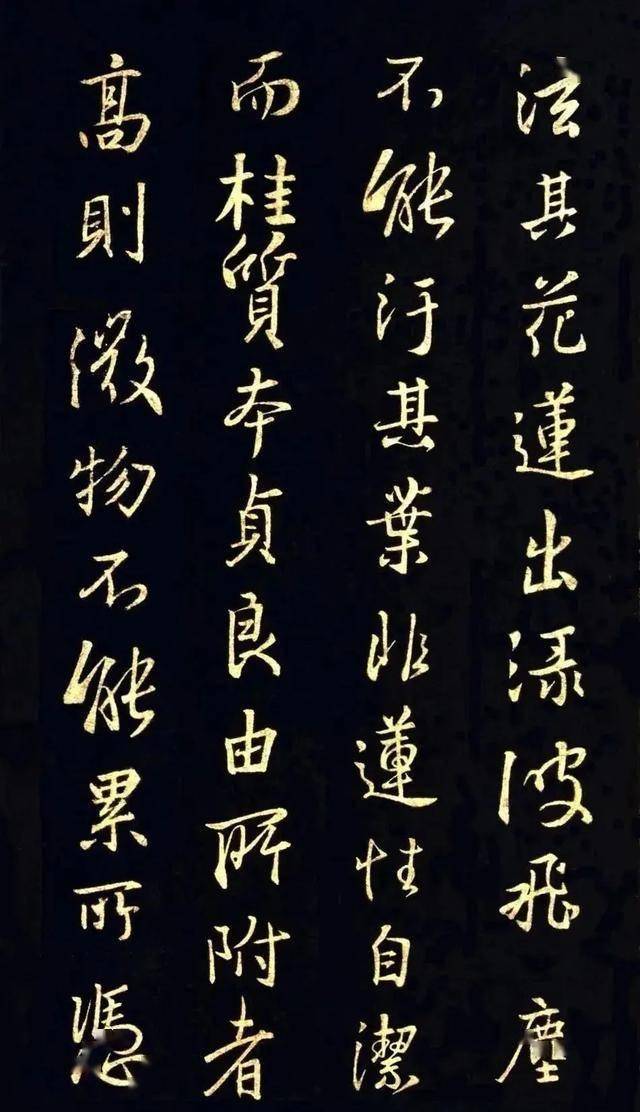 泫其花蓮出渌波飛塵
不能汙其葉非蓮性自潔
而桂質本貞良由所附者
高則微物不能累所憑